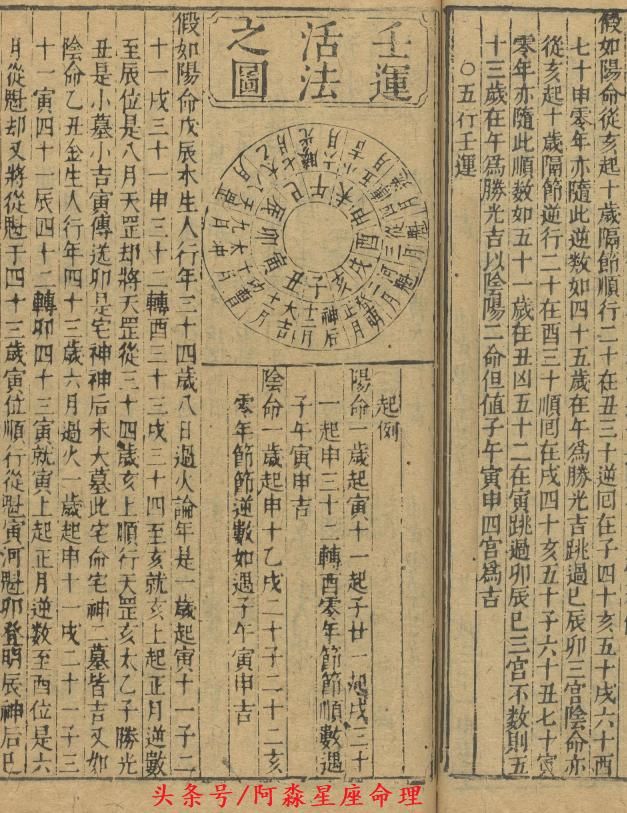 假如陽命從亥起十歲隔節順行二十在丑三十逆回在子四十亥五十戌六十酉
七十申零年亦隨此逆數如四十五歲在午爲勝光吉跳過巳辰卯三宮陰命亦
從亥起十歲隔節逆行二十在酉三十順回在戌四十亥五十子六十丑七十寅
零年亦隨此順數如五十一歲在丑凶五十二在寅跳過卯辰巳三宮不數則五
十三歲在午爲勝光吉以陰陽二命但值子午寅申四宮爲吉
○五行壬運
壬運
活法
之圖
子
亥
戌
酉
申
未
午
巳
辰
卯
寅
丑
起例
陽命一歲起寅十一起子廿一起戌三十
一起申三十二轉酉零年節節順數遇
子午寅申吉
陰命一歲起申十乙戌二十子二十二亥
零年節節逆數如遇子午寅申吉
假如陽命戊辰木生人行年三十四歲八日過火論年是一歲起寅十一子二
十一戌三十一申三十二轉酉三十三戌三十四至亥就亥上起正月逆數
至辰位是八月天罡却將天罡從三十四歲亥上順行天罡亥太乙子勝光
丑是小墓小吉寅傳送卯是宅神神后未大墓此宅命宅神二墓皆吉又如
陰命乙丑金生人行年四十三歲六月過火一歲起申十一戌二十一子三
十一寅四十一辰四十二轉卯四十三寅就寅上起正月逆数至酉位是六
月從魁却又將從魁于四十三歲寅位順行從魁寅河魁卯登明辰神后巳
头条号/阿淼星座命理